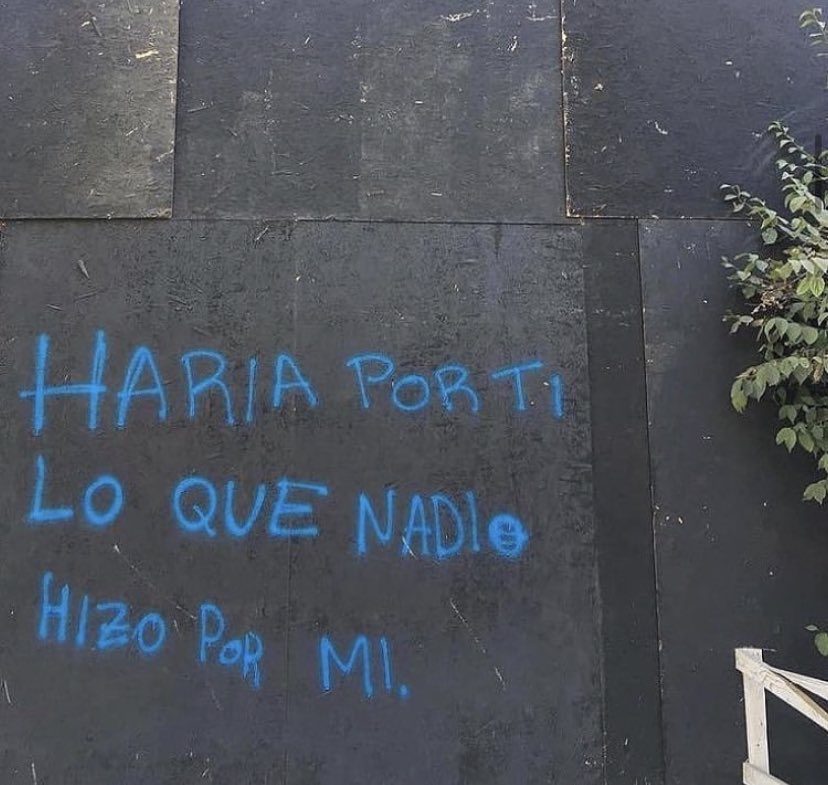 HARIA POR TI
LO QUE NADIE
HIZO POR MI.